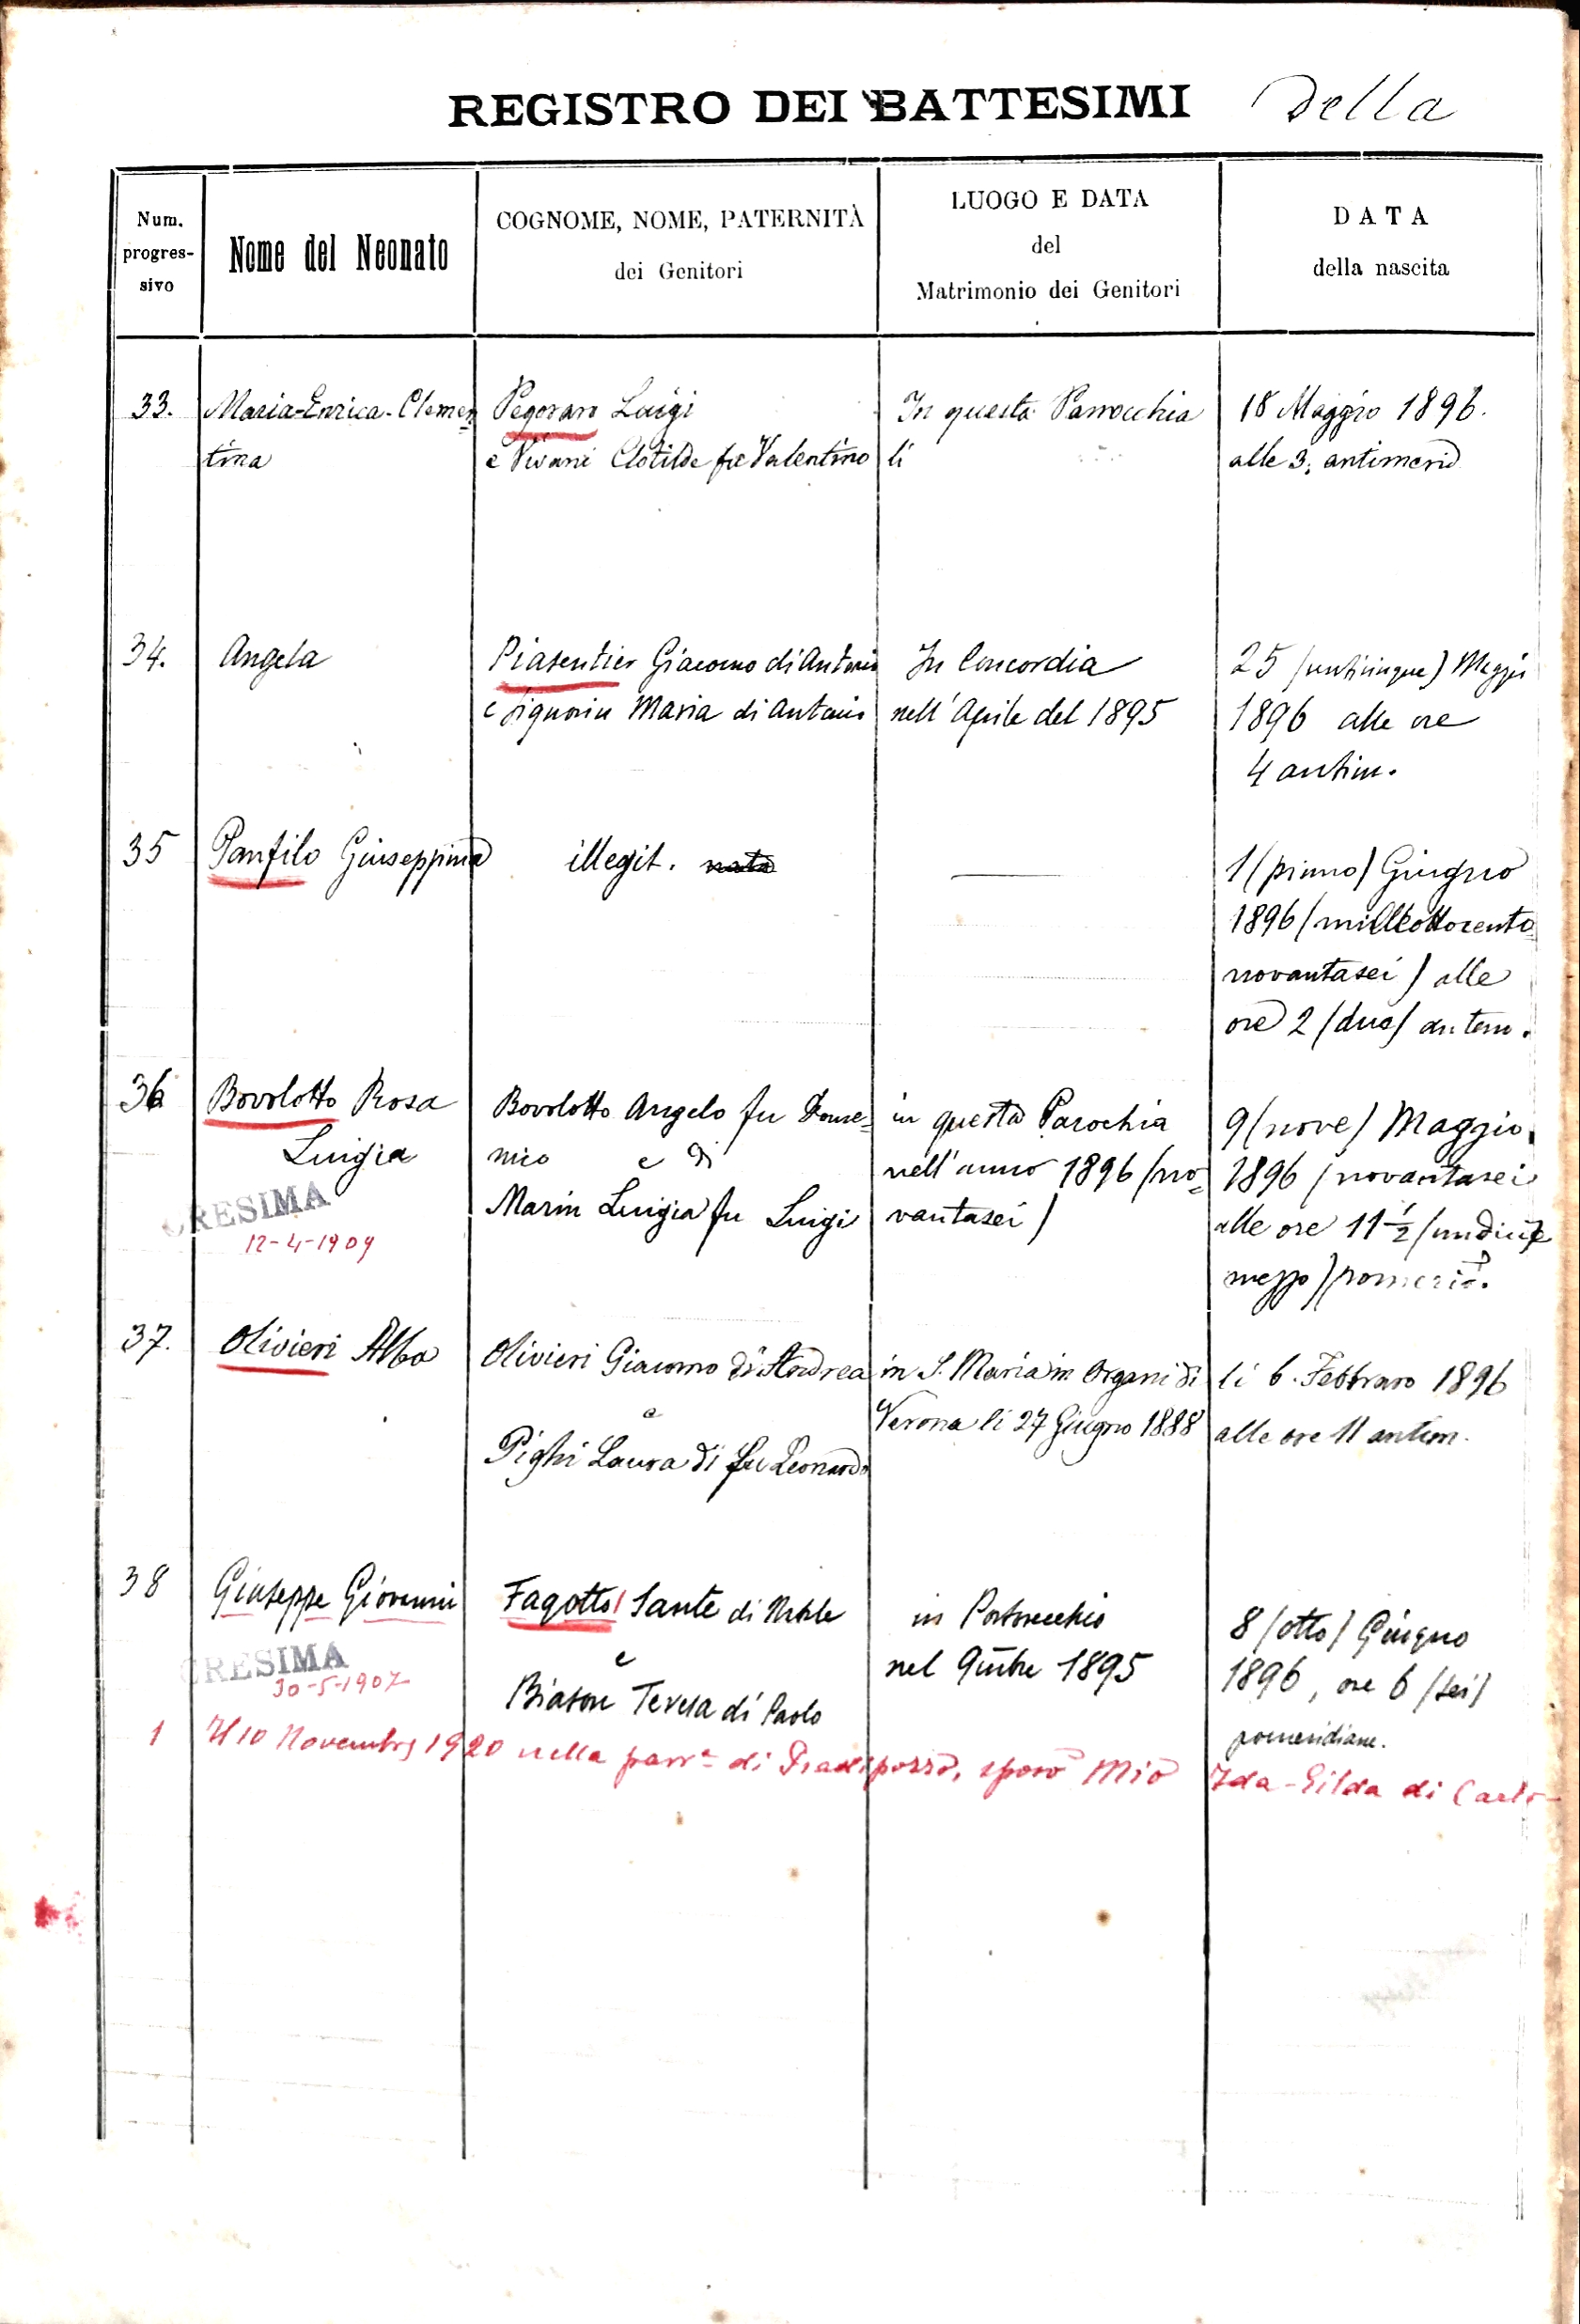 REGISTRO DEI BATTESIMI della
Num.
progres-
sivo
Nome del Neonato
COGNOME, NOME, PATERNITÀ
dei Genitori
LUOGO E DATA
del
Matrimonio dei Genitori
DATA
della nascita
33. Maria-Enrica-Clemen Pegoraro Luigi In questa Parrocchia 18 Maggio 1896.
tina e Vivani Clotilde fu Valentino li alle 3. antimerid
34. Angela Piasentier Giacomo di Antonio In Concordia 25 (venticinque) Maggio
e Signorin Maria di Antonio nell'Aprile del 1895 1896 alle ore
4 antim.
35 Panfilo Giuseppina illegit. nata 1 (primo) Giugno
1896 (milleottocento
novantasei) alle
ore 2 (due) antem.
36 Bovolotto Rosa Bovolotto Angelo fu Dome= in questa Parochia 9 (nove) Maggio
Luigia nico e di nell'anno 1896 (no= 1896 (novantasei
CRESIMA Marin Luigia fu Luigi vantasei) alle ore 11 1/2 (undici e
12-4-1909 mezzo) pomerid.
37. Olivieri Alba Olivieri Giacomo di Andrea in S. Maria in Organi di li 6. Febbraro 1896
e Verona li 27 Giugno 1888 alle ore 11 antim.
Pighi Laura di fu Leonardo
38 Giuseppe Giovanni Fagotto Sante di Natale in Portovecchio 8 (otto) Giugno
CRESIMA e nel 9mbre 1895 1896, ore 6 (sei)
30-5-1907 Biason Teresa di Paolo pomeridiane.
1 Il 10 Novembre 1920 nella parr.a di Pradipozzo, sposò Mio Ida-Gilda di Carlo-